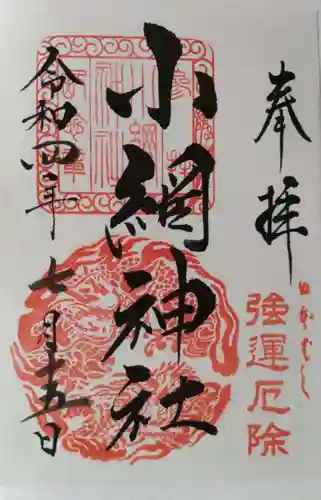 奉拝
強運厄除
小網神社
令和四年
七月十五日